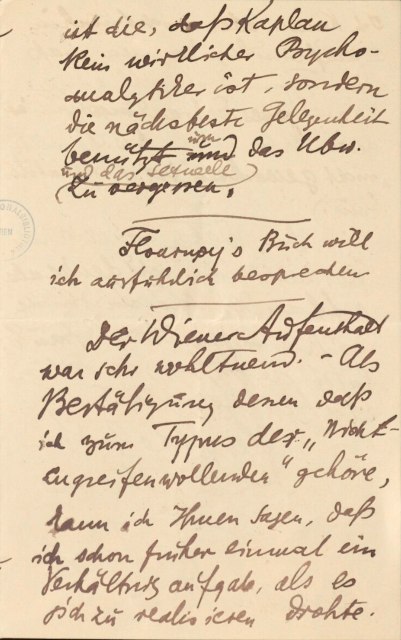 ist die, daß Kaplan
kein wirklicher Psycho-
analytiker ist, sondern
die nächstbeste Gelegenheit
benützt um das Ubw.
und das Sexuelle
zu vergessen.
Flournoy's Buch will
ich ausführlich besprechen
Der Wiener Aufenthalt
war sehr wohltuend. - Als
Bestätigung dessen daß
ich zum Typus der „Nicht-
zugreifenwollenden“ gehöre,
kann ich Ihnen sagen, daß
ich schon früher einmal ein
Verhältnis aufgab, als es
sich zu realisieren drohte.